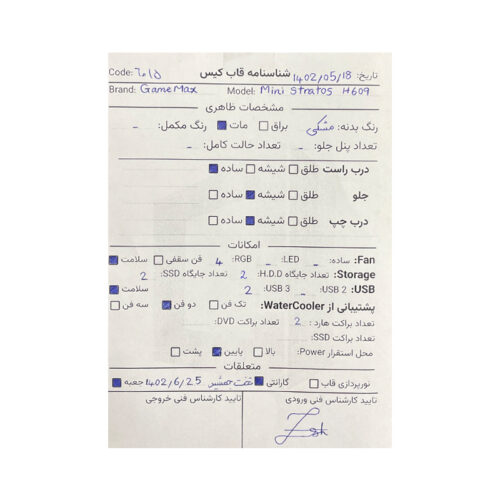 شناسنامه قاب کیس تاریخ: 1402/05/18 Code:
Brand: GameMax Model: Mini Stratos H609
مشخصات ظاهری
رنگ بدنه: مشکی براق مات رنگ مکمل: -
تعداد پنل جلو: - تعداد حالت کامل: -
درب راست طلق شیشه ساده
جلو طلق شیشه ساده
درب چپ طلق شیشه ساده
امکانات
Fan: ساده: - LED: - RGB: 4 فن سقفی سلامت
Storage: تعداد جایگاه H.D.D 2 تعداد جایگاه SSD: 2
USB: USB 2 - USB 3 2 سلامت
پشتیبانی از WaterCooler: تک فن دو فن سه فن
تعداد براکت هارد : 2 تعداد براکت DVD:
تعداد براکت SSD:
محل استقرار Power: بالا پایین پشت
متعلقات
نورپردازی قاب گارانتی 1402/6/25 جعبه
تایید کارشناس فنی ورودی تایید کارشناس فنی خروجی